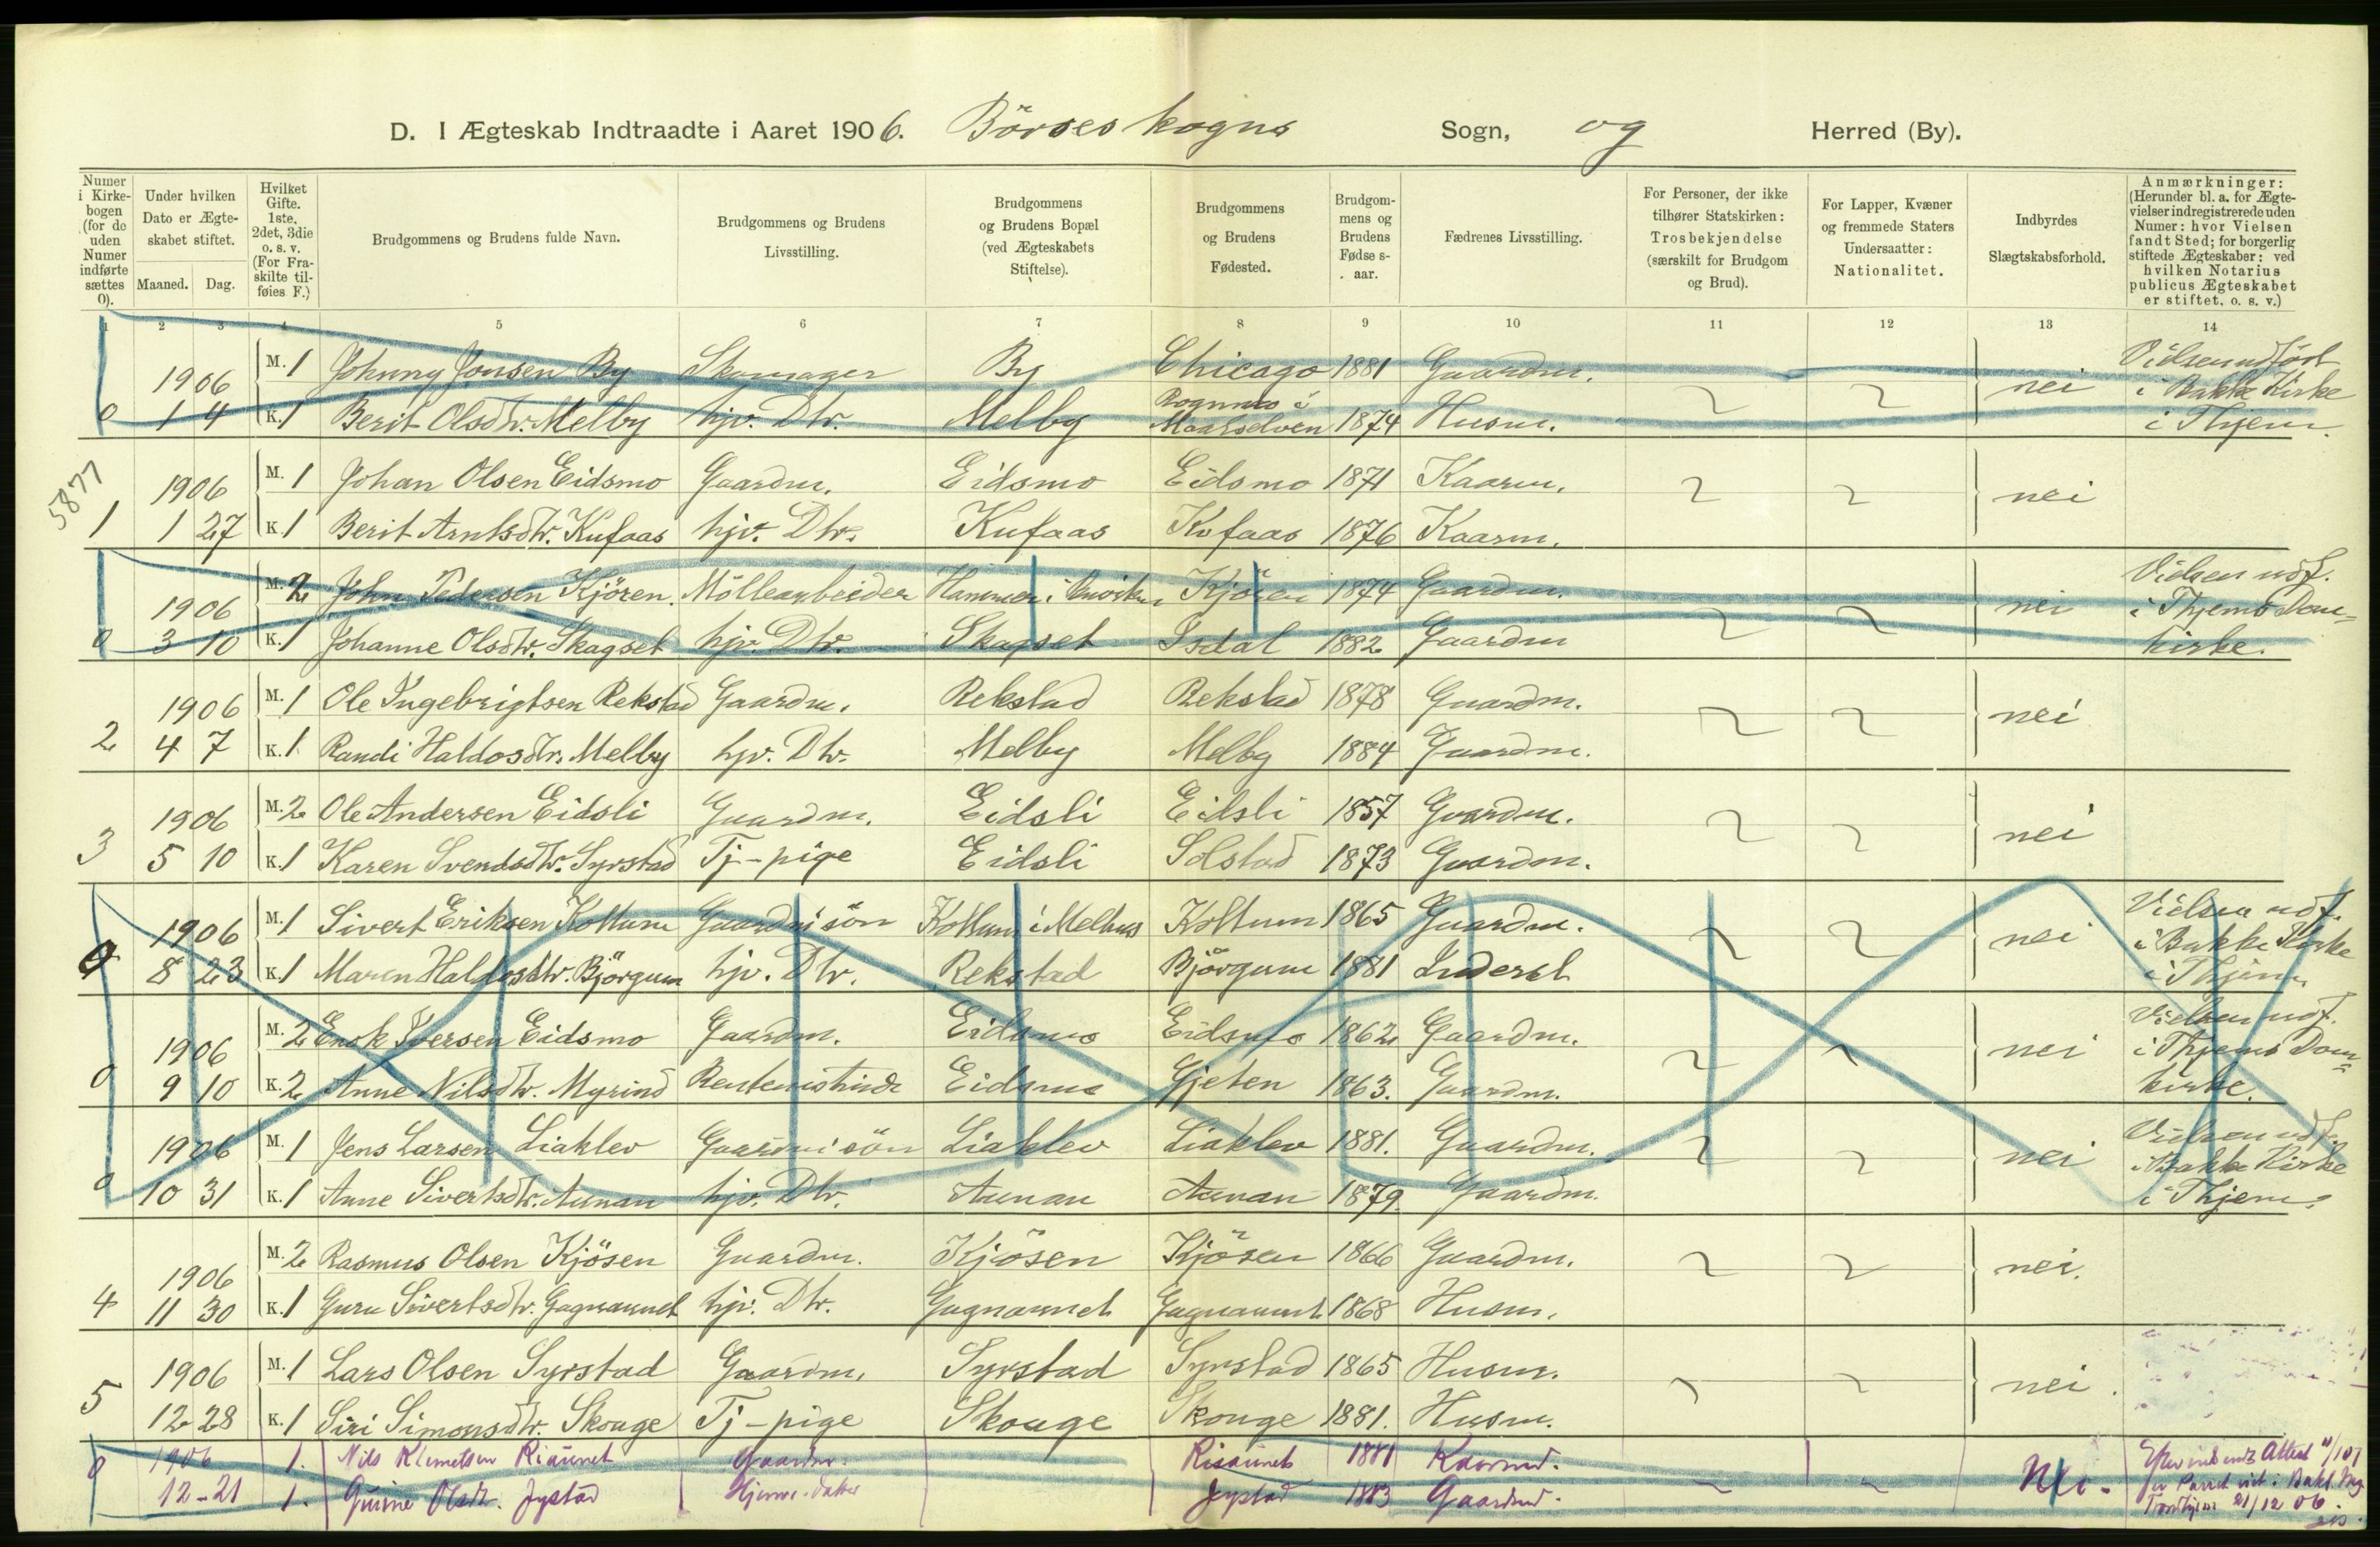 D. I Ægteskab Indtraadte i Aaret 1906. Börseskogns Sogn, og Herred (By).
Numer i Kirkebogen (for de uden Numer indførte sættes 0).
Under hvilken Dato er Ægteskabet stiftet.
Maaned. Dag.
Hvilket Gifte. 1ste, 2det, 3die o. s. v. (For Fraskilte tilføies F.)
Brudgommens og Brudens fulde Navn.
Brudgommens og Brudens Livsstilling.
Brudgommens og Brudens Bopæl (ved Ægteskabets Stiftelse).
Brudgommens og Brudens Fødested.
Brudgommens og Brudens Fødselsaar.
Fædrenes Livsstilling.
For Personer, der ikke tilhører Statskirken: Trosbekjendelse (særskilt for Brudgom og Brud).
For Lapper, Kvæner og fremmede Staters Undersaatter: Nationalitet.
Indbyrdes Slægtskabsforhold.
Anmærkninger: (Herunder bl. a. for Ægtevielser indregistrerede uden Numer: hvor Vielsen fandt Sted; for borgerlig stiftede Ægteskaber: ved hvilken Notarius publicus Ægteskabet er stiftet, o. s. v.)
1 2 3 4 5 6 7 8 9 10 11 12 13 14
1906 M. 1 Johnny Jonsen By Skomager By Chicago 1881 Gaardm. nei Vielsen udført i Bakke Kirke i Thjem.
0 1 4 K. 1 Berit Olsdtr. Melby hjv. Dtr. Melby Maalselven 1874 Husm.
5877
1906 M. 1 Johan Olsen Eidsmo Gaardm. Eidsmo Eidsmo 1871 Kaarm. nei
1 1 27 K. 1 Berit Arntsdtr. Kufaas hjv. Dtr. Kufaas Kufaas 1876 Kaarm.
1906 M. 2 John Pedersen Kjören. Möllearbeider Hammer i Kjören 1874 Gaardm. nei Vielsen udf. i Thjems Domkirke.
0 3 10 K. 1 Johanne Olsdtr. Skagset hjv. Dtr. Skagset Isdal 1882 Gaardm
1906 M. 1 Ole Ingebrigtsen Rekstad Gaardm. Rekstad Rekstad 1878 Gaardm. nei
2 4 7 K. 1 Randi Haldosdtr. Melby hjv. Dtr. Melby Melby 1884 Gaardm.
1906 M. 2 Ole Andersen Eidsli Gaardm. Eidsli Eidsli 1857 Gaardm. nei
3 5 10 K. 1 Karen Svendsdtr. Syrstad Tj-pige Eidsli Solstad 1873 Gaardm.
1906 M. 1 Sivert Eriksen Kottum Gaardmisön Kottum i Melhus Kottum 1865 Gaardm. nei Vielsen udf. i Bakke Kirke i Thjem
0 8 23 K. 1 Maren Haldosdtr. Björgum hjv. Dtr. Rekstad Björgum 1881 Inderst
1906 M. 2 Enok Iversen Eidsmo Gaardm. Eidsmo Eidsmo 1862 Gaardm. nei Vielsen udf. i Thjems Domkirke.
0 9 10 K. 2 Anne Nilsdtr. Myrind Eidsmo Gjeten 1863. Gaardm.
1906 M. 1 Jens Larsen Liaklev Gaardmisön Liaklev Liaklev 1881. Gaardm. nei Vielsen udf. i Bakke Kirke i Thjem.
0 10 31 K. 1 Anne Sivertsdtr. Aunan hjv. Dtr. Aunan Aunan 1879. Gaardm.
1906 M. 2 Rasmus Olsen Kjösen Gaardm. Kjösen Kjösen 1866 Gaardm. nei.
4 11 30 K. 1 Guru Sivertsdtr. Gagnaunet hjv. Dtr. Gagnaunet Gagnaunet 1868 Husm.
1906 M. 1 Lars Olsen Syrstad Gaardm. Syrstad Syrstad 1865 Husm. nei.
5 12 28 K. 1 Siri Simonsdtr. Skouge Tj-pige Skouge Skouge 1881. Husm.
0 1906 1. Nils Klemetsen Risaunet Gaardm. Risaunet 1881 Kaarmd. Nei. Attest
12-21 1. Olsdtr. Jystad Hjemme-datter Jystad 1883 Gaardmd. Parret viet i Bakke 21/12 06.